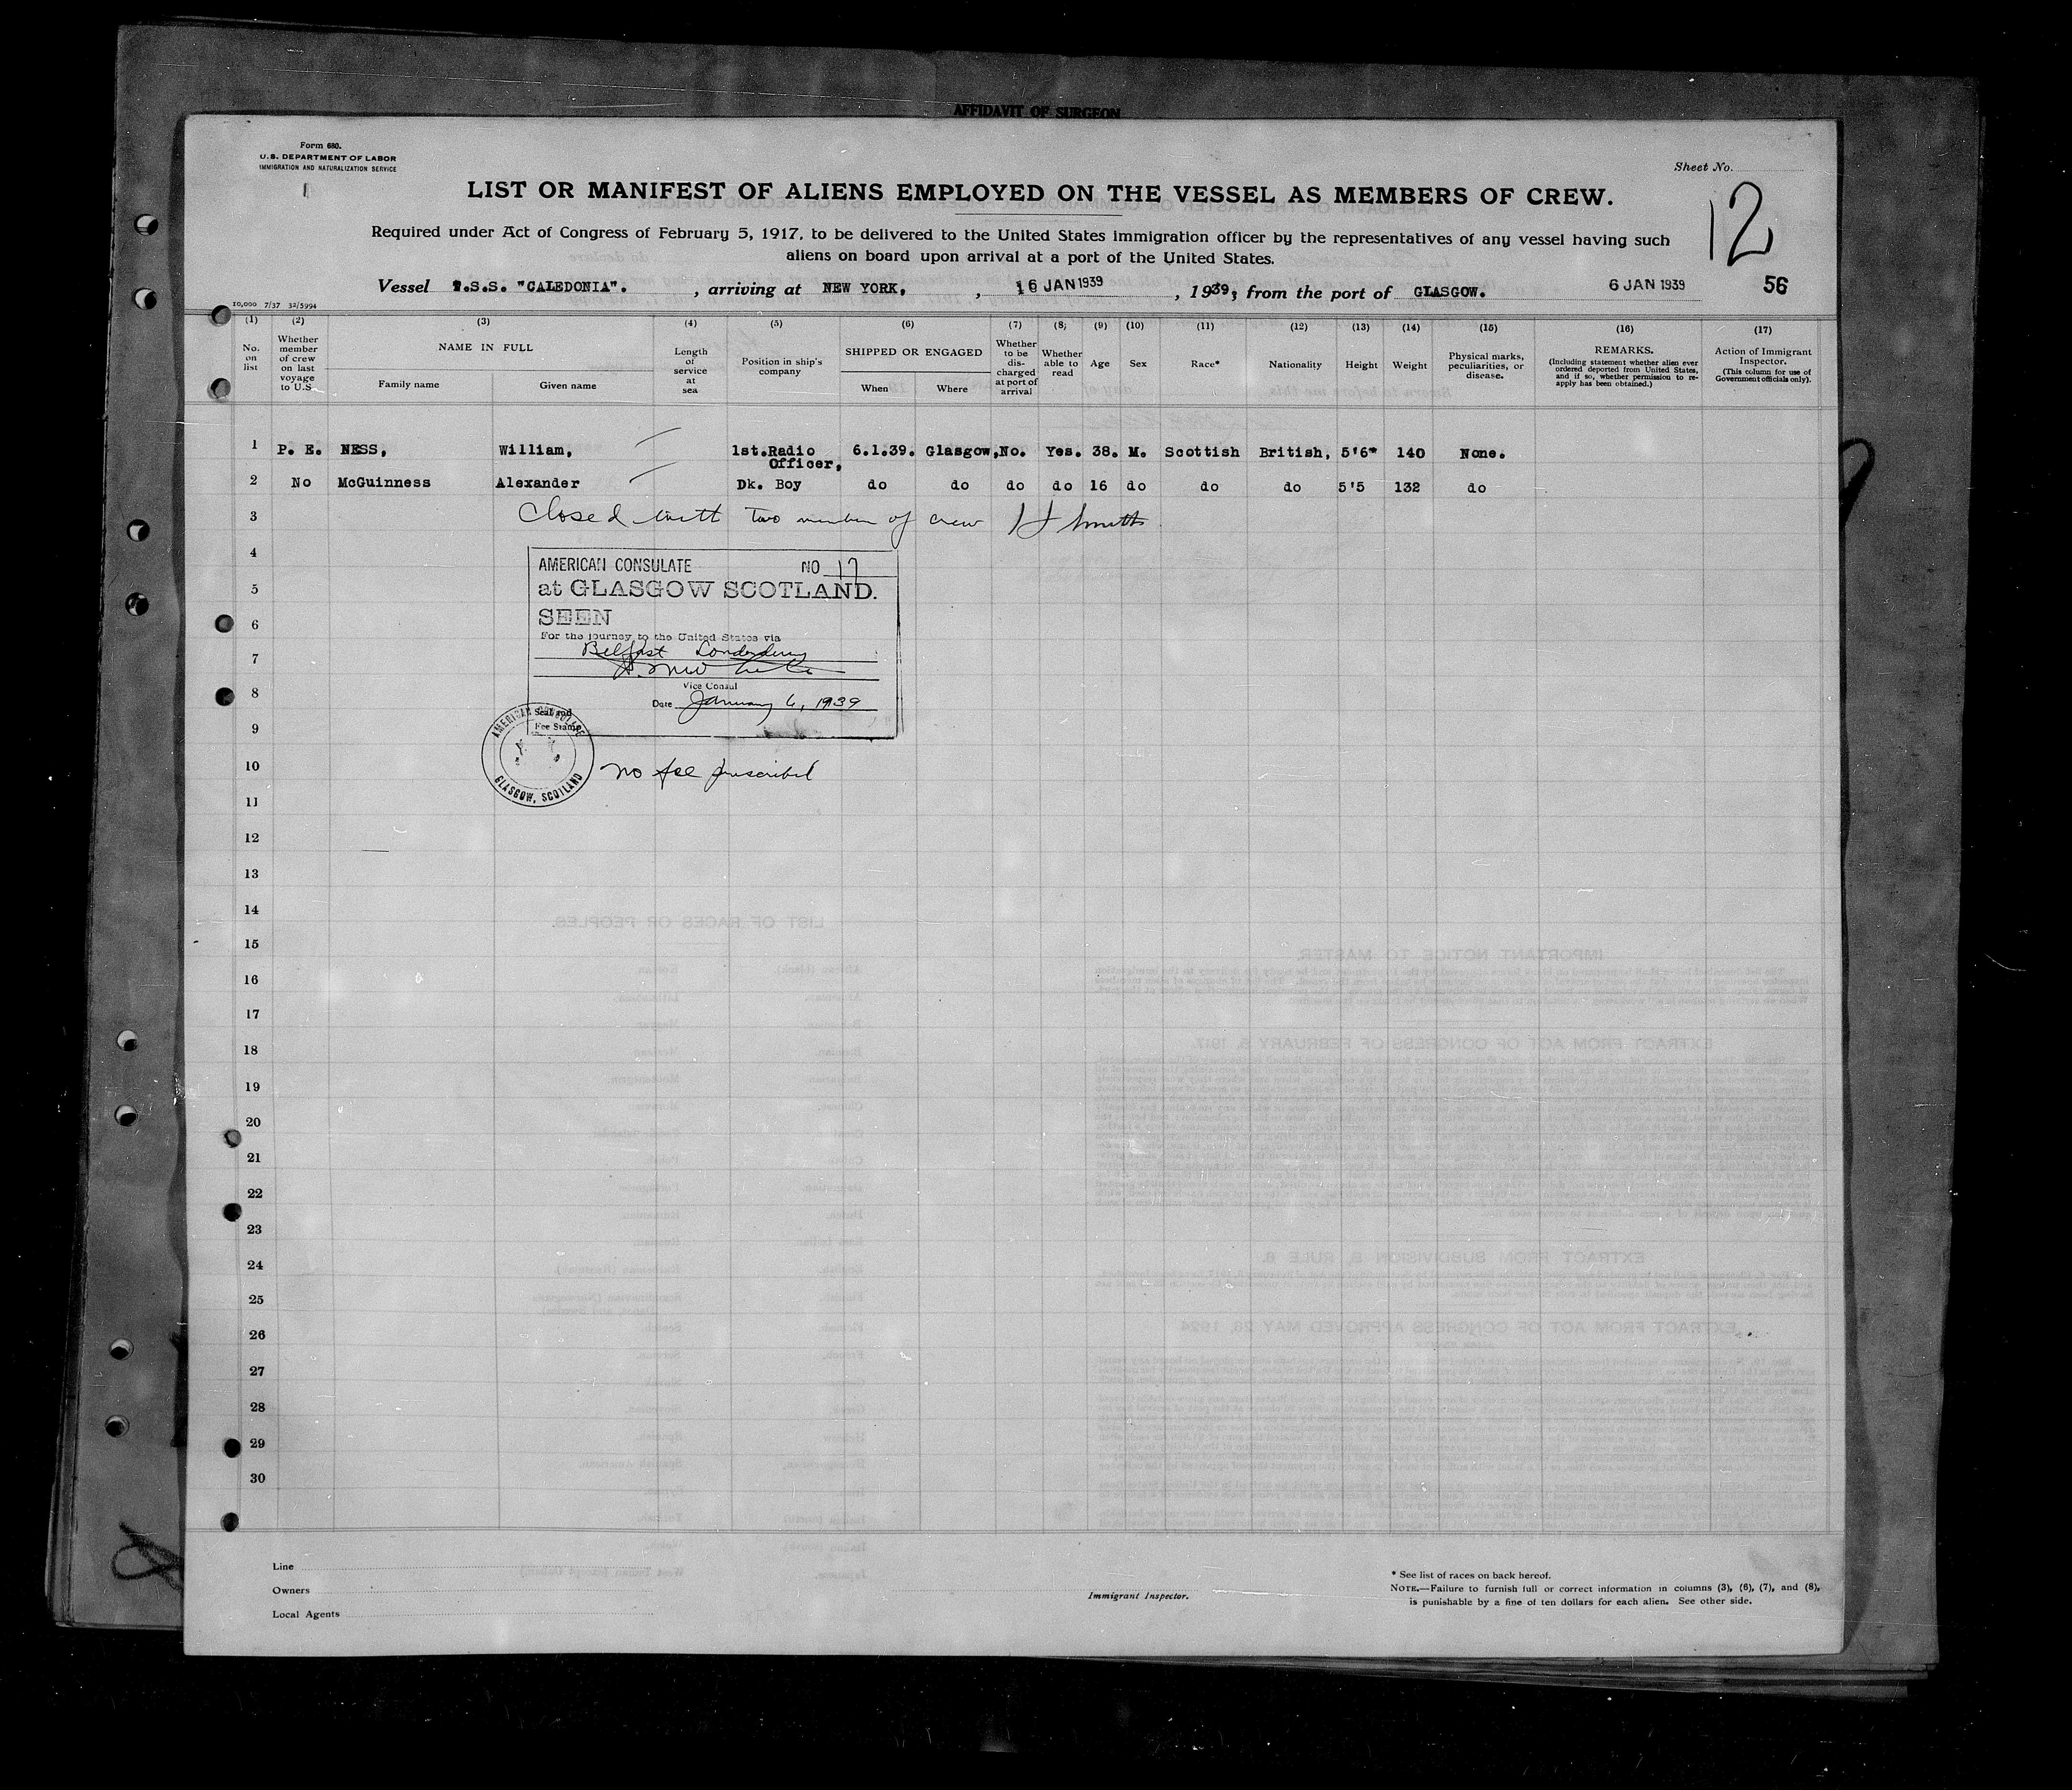 AFFIDAVIT OF SURGEON
Form 680.
U.S. DEPARTMENT OF LABOR
IMMIGRATION AND NATURALIZATION SERVICE
Sheet No.
LIST OR MANIFEST OF ALIENS EMPLOYED ON THE VESSEL AS MEMBERS OF CREW.
12
Required under Act of Congress of February 5, 1917, to be delivered to the United States immigration officer by the representatives of any vessel having such
aliens on board upon arrival at a port of the United States.
Vessel T.S.S. "CALEDONIA". , arriving at NEW YORK, , 16 JAN 1939 , 1939, from the port of GLASGOW. 6 JAN 1939 56
10,000 7/37 32/5994
(1) (2) (3) (4) (5) (6) (7) (8) (9) (10) (11) (12) (13) (14) (15) (16) (17)
No. on list
Whether member of crew on last voyage to U.S.
NAME IN FULL
Family name
Given name
Length of service at sea
Position in ship's company
SHIPPED OR ENGAGED
When
Where
Whether to be discharged at port of arrival
Whether able to read
Age
Sex
Race*
Nationality
Height
Weight
Physical marks, peculiarities, or disease.
REMARKS.
(Including statement whether alien ever ordered deported from United States, and if so, whether permission to re-apply has been obtained.)
Action of Immigrant Inspector.
(This column for use of Government officials only).
1 P. E. NESS, William, 1st.Radio Officer, 6.1.39. Glasgow, No. Yes. 38. M. Scottish British, 5'6" 140 None.
2 No McGuinness Alexander Dk. Boy do do do do 16 do do do 5'5 132 do
3 Closed with two member of crew H Smith
4
AMERICAN CONSULATE NO 17
5
at GLASGOW SCOTLAND.
6
SEEN
For the journey to the United States via
7
Belfast Londonderry
8
Vice Consul
Date January 6, 1939
9
Seal and
Fee Stamp
AMERICAN CONSULATE
GLASGOW, SCOTLAND
10
no fee prescribed
11
12
13
14
15
16
17
18
19
20
21
22
23
24
25
26
27
28
29
30
Line
Owners
Local Agents
Immigrant Inspector.
* See list of races on back hereof.
NOTE.—Failure to furnish full or correct information in columns (3), (6), (7), and (8),
is punishable by a fine of ten dollars for each alien. See other side.